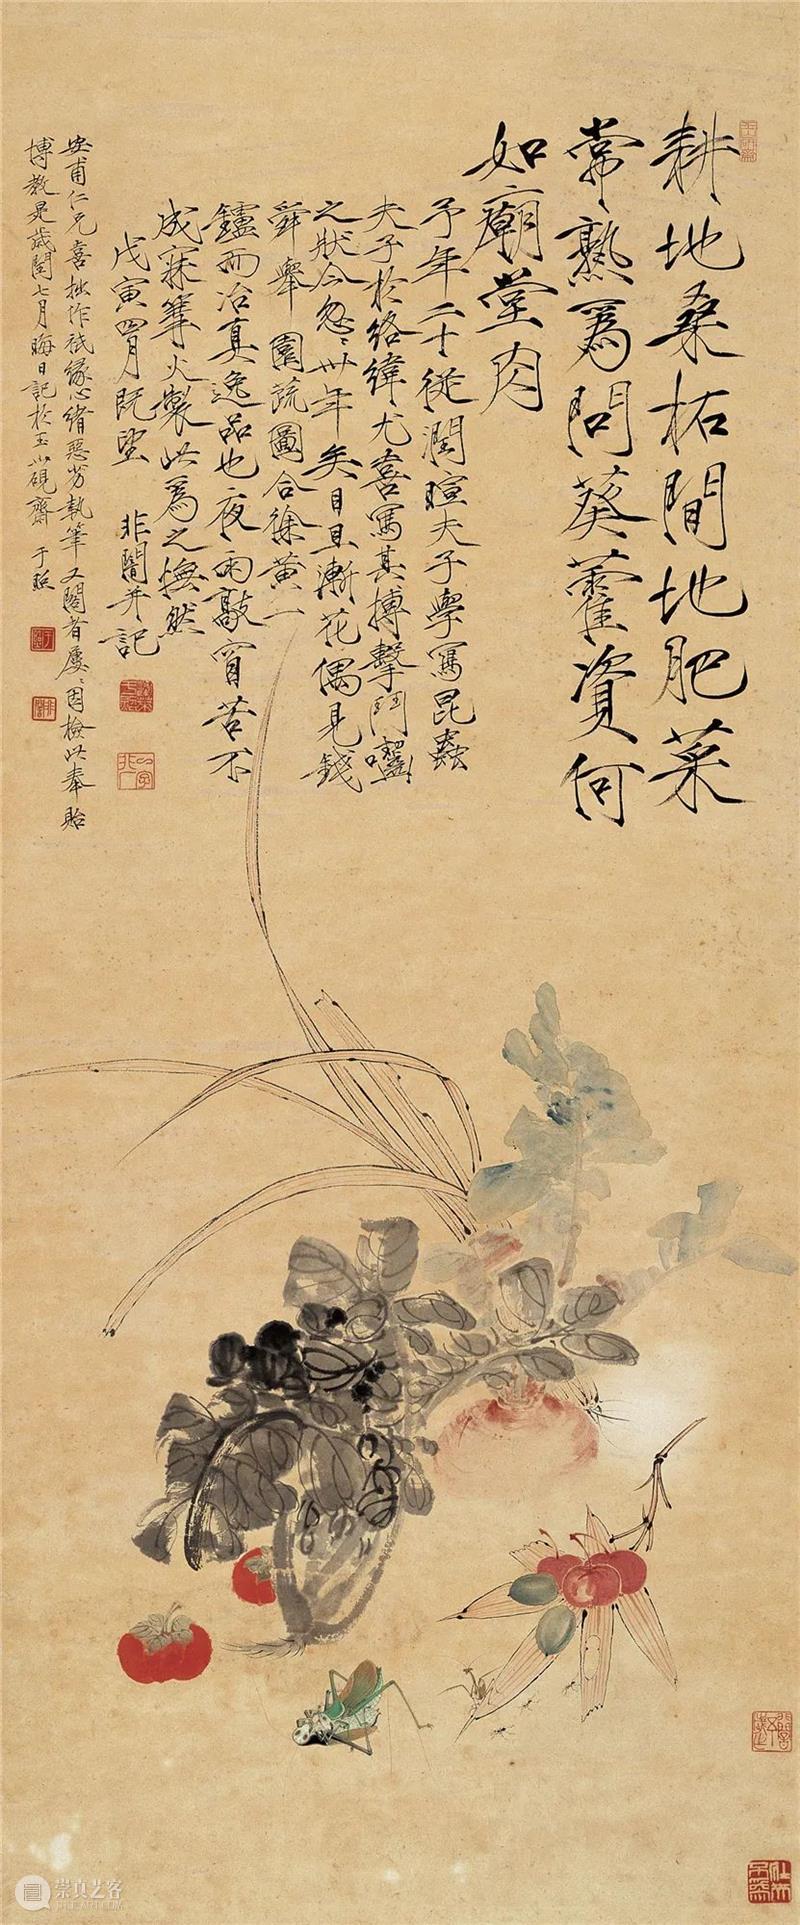 耕地桑柘間地肥菜
常熟為問葵藿資何
如廟堂肉
予年二十從潤暄夫子學寫昆蟲
夫子於絡緯尤喜寫其搏擊鬥囓
之狀今忽忽卅年矣目且漸花偶見錢
舜舉園蔬圖合徐黃一
鑪而冶真逸品也夜雨敲窗苦不
成寐篝火製此為之撫然
戊寅四月既望 非闇并記
安甫仁兄喜拙作祇緣心緒惡劣執筆又閣者屢屢因檢此奉貽
博教是歲閏七月晦日記於玉山硯齋 于照
崇真艺客